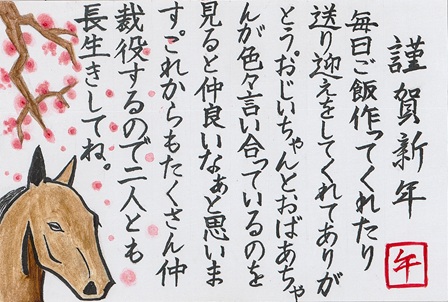 謹賀新年
毎日ご飯作ってくれたり
送り迎えをしてくれてありが
とう。おじいちゃんとおばあちゃ
んが色々言い合っているのを
見ると仲良いなぁと思いま
す。これからもたくさん仲
裁役するので二人とも
長生きしてね。
午